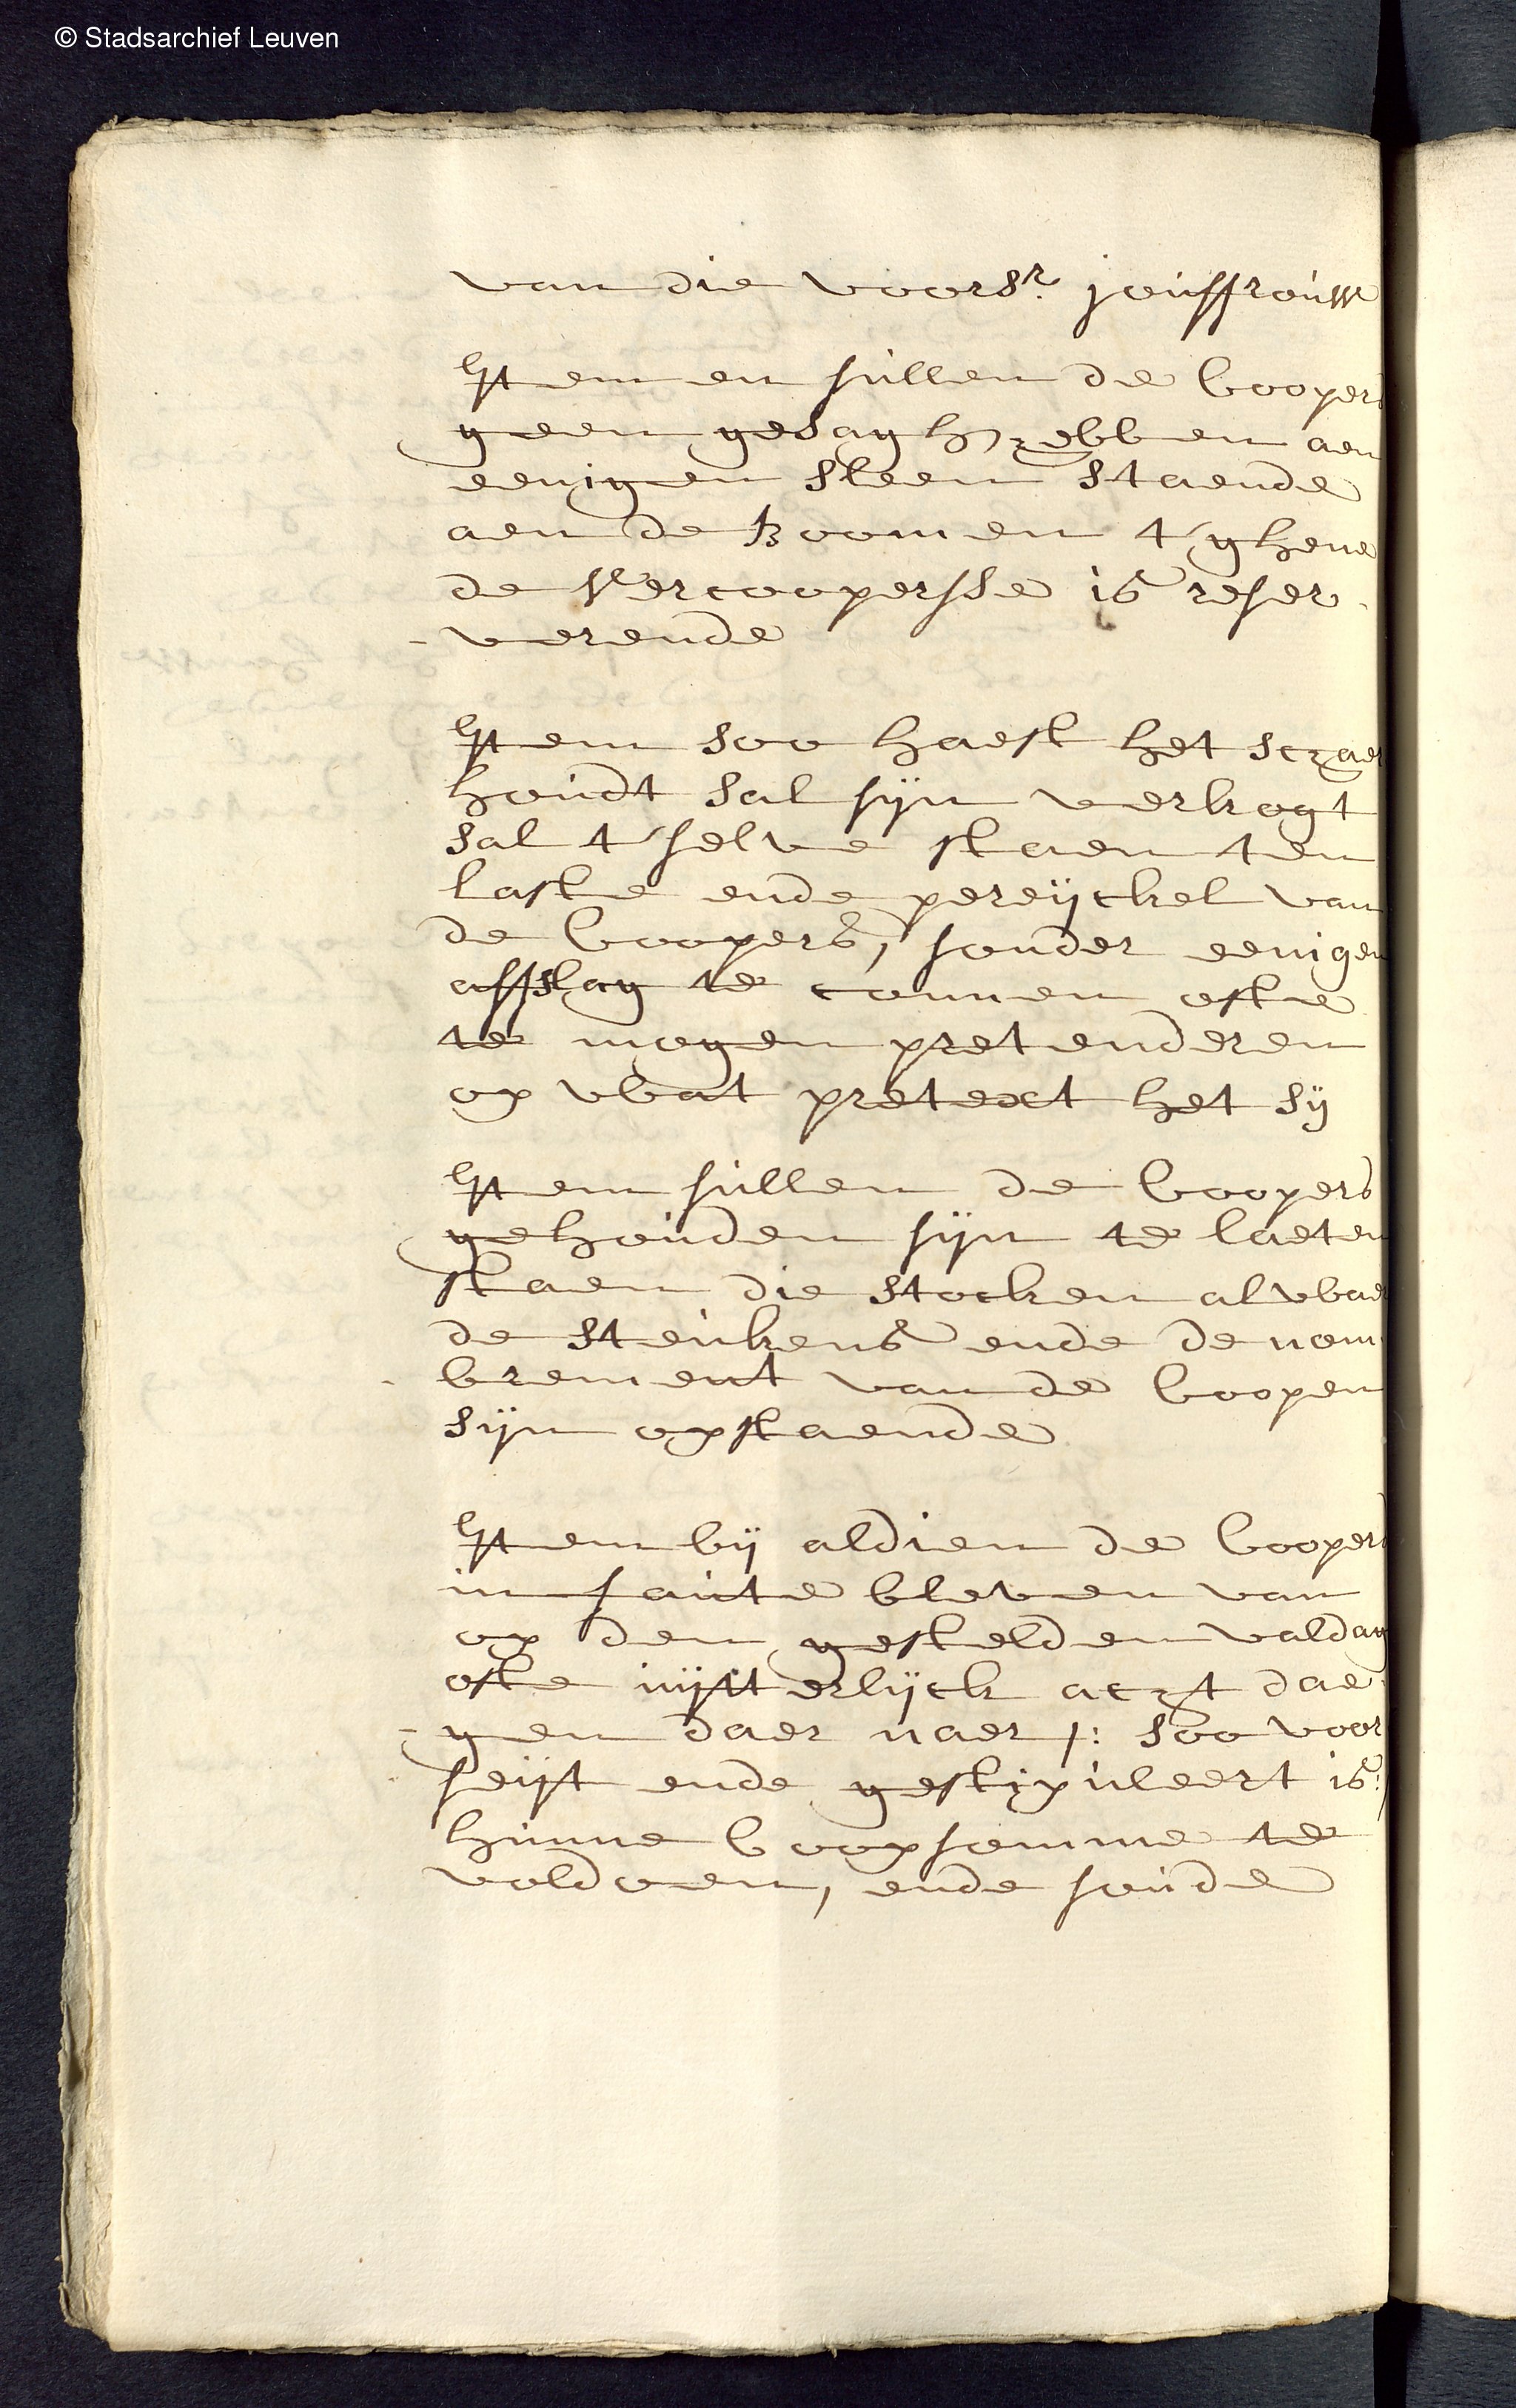 © Stadsarchief Leuven
van die voorsr. jouffrouw
Item en sullen de Coopers
geen gesagh hebben aen
eenigen sleen staende
aen de Boomen t'ghene
de Vercoopersse is reser
-verende
Item soo haest het schaer
houdt sal sijn verkogt
sal t'selve staen ten
laste ende pereijckel van
de Coopers, sonder eenigen
affslag te connen ofte
te mogen pretenderen
op wat pretext het sij
Item sullen de Coopers
gehouden sijn te laeten
staen die stocken alwaer
de steukens ende de nom
-brement van de Coopen
sijn opstaende
Item bij aldien de Coopers
in faute bleven van
op den gestelden valdag
ofte uijtterlijck acht dae
-gen daer naer /: soo voor
seijt ende gestipuleert is :/
hunne Coopsomme te
voldoen, ende soude